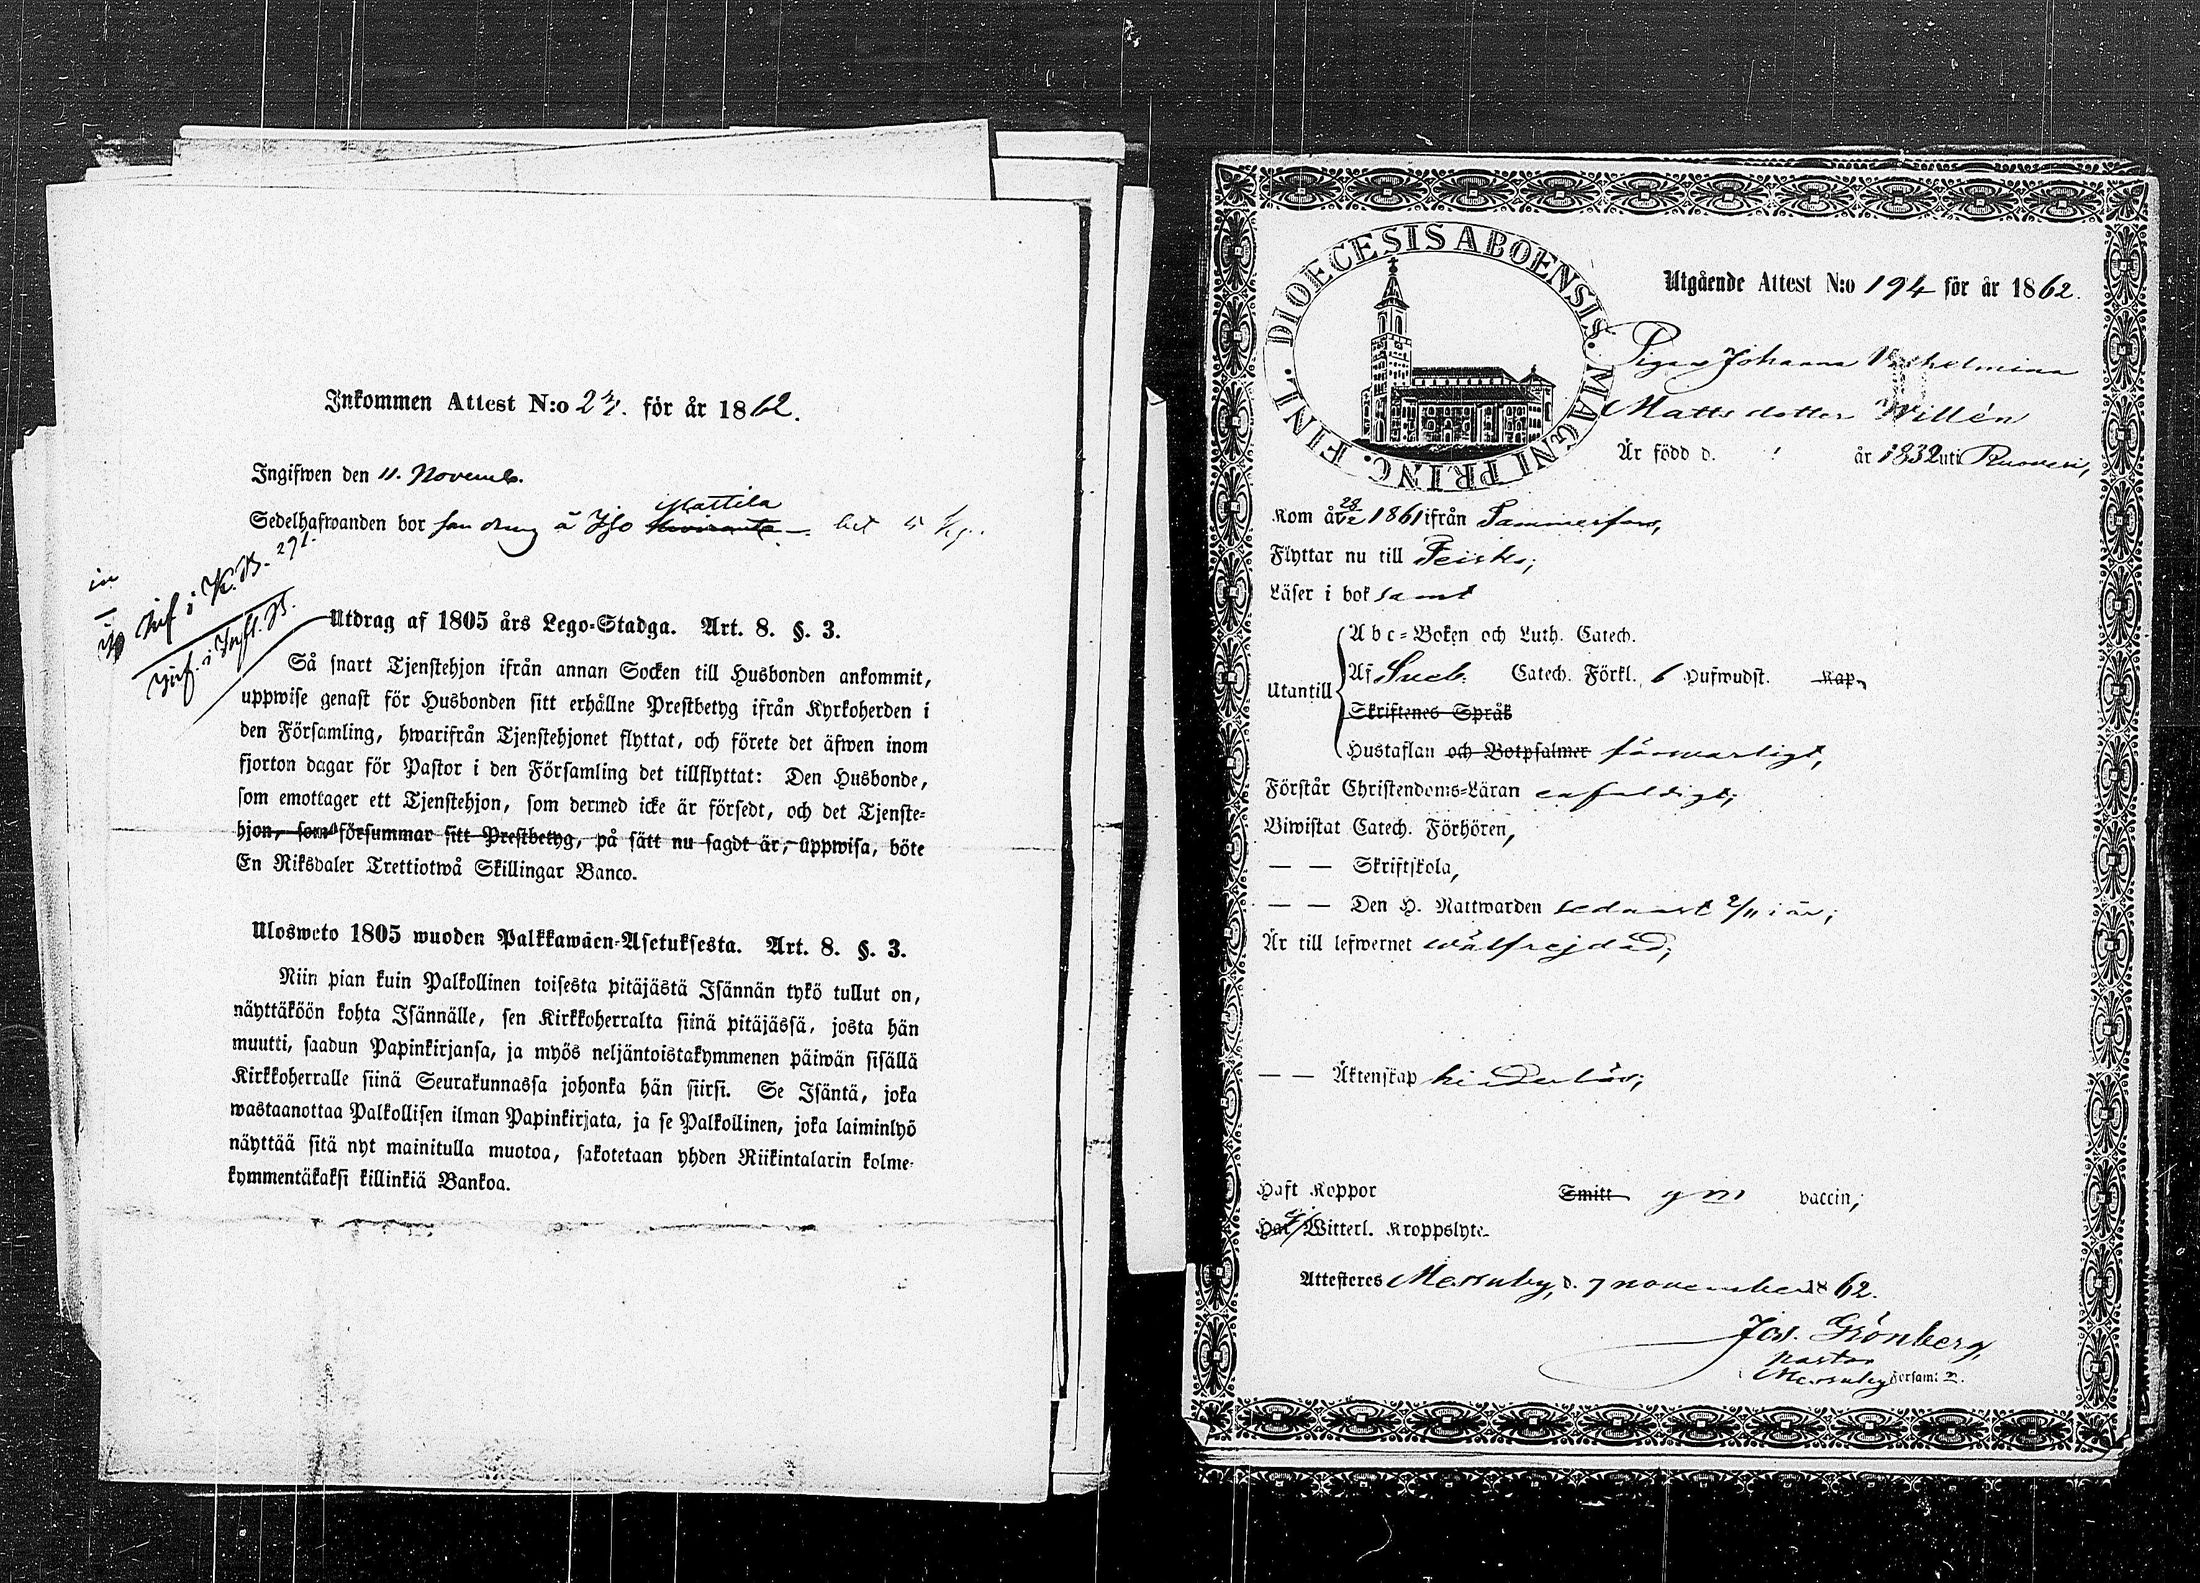 Inkommen Attest N:o 23. för år 1862.
Ingifwen den 11. Novemb.
Mattila
Sedelhafwanden bor å Ylo
in
inf i K.B. 271.
inf. i Infl. B.
Utdrag af 1805 års Lego-Stadga. Art. 8. §. 3.
Så snart Tjenstehjon ifrån annan Socken till Husbonden ankommit,
uppwise genast för Husbonden sitt erhållne Prestbetyg ifrån Kyrkoherden i
den Församling, hwarifrån Tjenstehjonet flyttat, och förete det äfwen inom
fjorton dagar för Pastor i den Församling det tillflyttat: Den Husbonde,
som emottager ett Tjenstehjon, som dermed icke är försedt, och det Tjenste-
hjon, som försummar sitt Prestbetyg, på sätt nu sagdt är, uppwisa, böte
En Riksdaler Trettiotwå Skillingar Banco.
Ulosweto 1805 wuoden Palkkawäen-Asetuksesta. Art. 8. §. 3.
Niin pian kuin Palkollinen toisesta pitäjästä Isännän tykö tullut on,
näyttäköön kohta Isännälle, sen Kirkkoherralta siinä pitäjässä, josta hän
muutti, saadun Papinkirjansa, ja myös neljäntoistakymmenen päiwän sisällä
Kirkkoherralle siinä Seurakunnassa johonka hän siirsi. Se Isäntä, joka
wastaanottaa Palkollisen ilman Papinkirjata, ja se Palkollinen, joka laiminlyö
näyttää sitä nyt mainitulla muotoa, sakotetaan yhden Riikintalarin kolme-
kymmentäkaksi killinkiä Bankoa.
DIOECESIS ABOENSIS. MAGNI PRINC. FINL.
Utgående Attest N:o 194 för år 1862.
Pigan Johanna Wilhelmina
Matts dotter Willén
Är född d. år 1832 uti Ruovesi,
Kom år 28/12 1861 ifrån Tammerfors,
Flyttar nu till Teisko;
Läser i bok samt
Utantill
Abc-Boken och Luth. Catech.
Af Sveb. Catech. Förkl. 6 Hufwudst. Kap.
Skriftenes Språk
Hustaflan och Botpsalmer förswarligt,
Förstår Christendoms-Läran enfaldigt;
Biwistat Catech. Förhören,
— — Skriftskola,
— — Den H. Nattwarden sednast 2/11 i år;
Är till lefwernet wälfrejdad;
— — Äktenskap hinderlös;
Haft Koppor Smitt gm vaccin,
Har ej Witterl. Kroppslyte.
Attesteres Messuby, d. 7 november 1862.
Jos. Grönberg,
Pastor
i Messuby Forsaml:n.